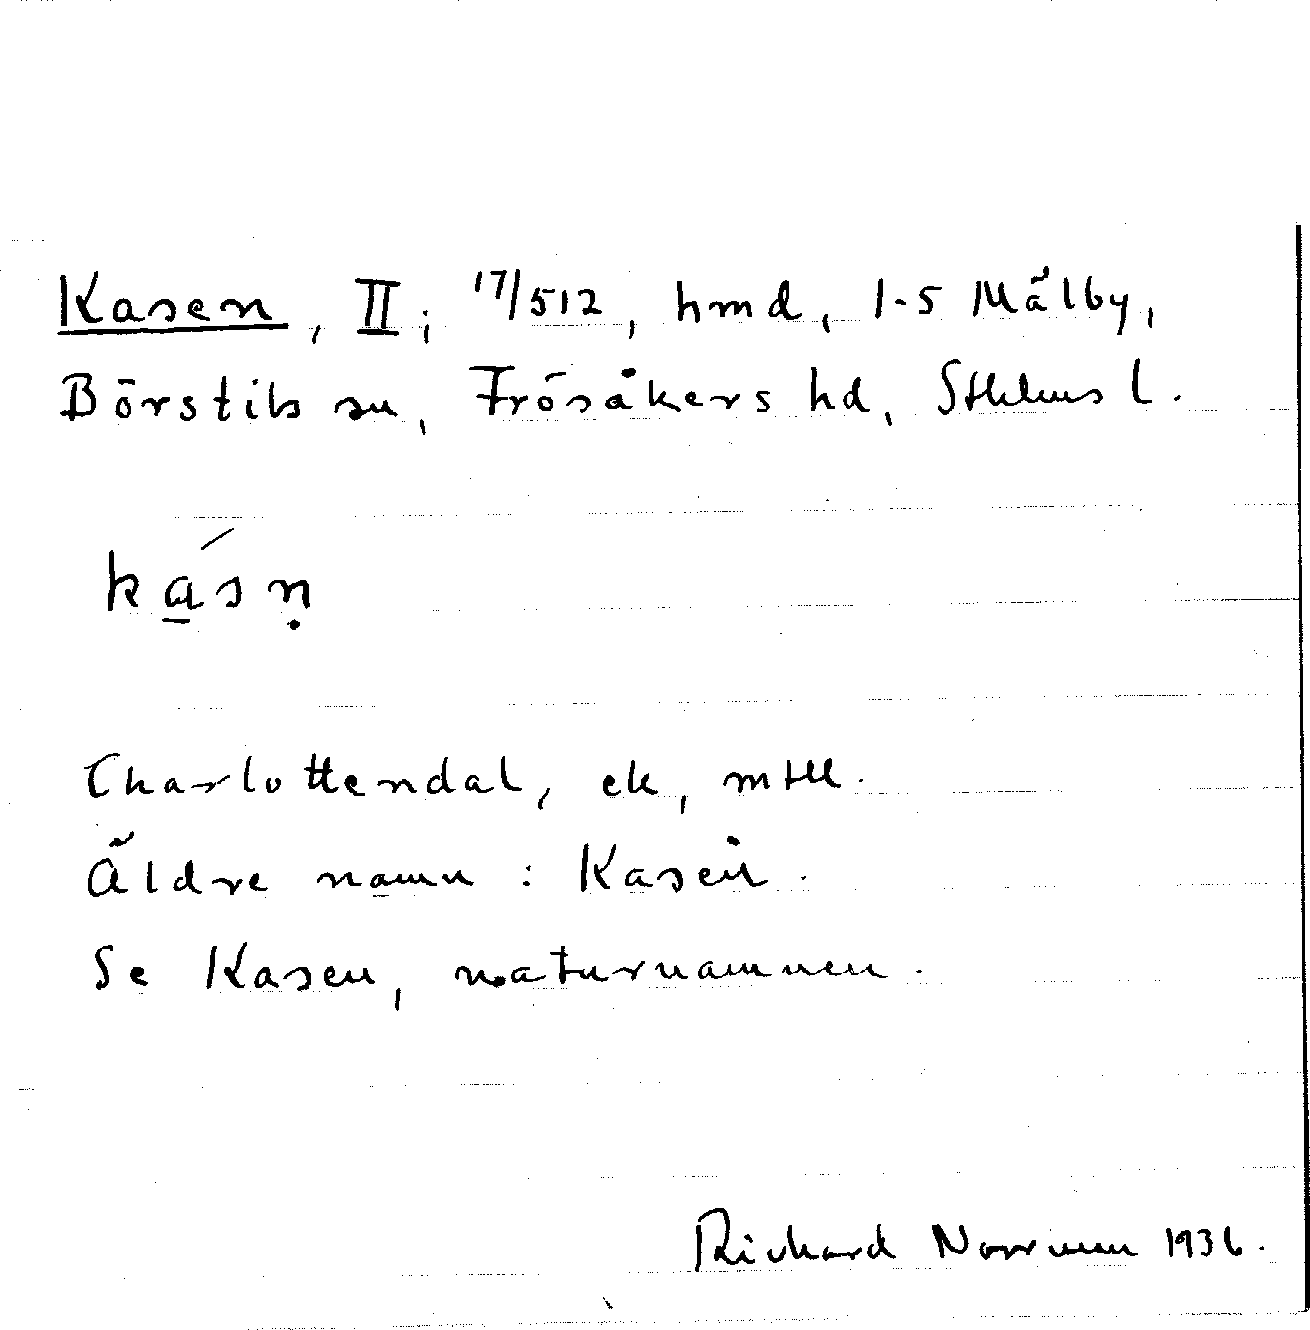 Kasen, II; 17/512, hmd, 1-5 Mälby,
Börstils sn, Frösåkers hd, Sthlms l.
ka̱´sṇ
Charlottendal, ek, mtll.
Äldre namn: Kasen.
Se Kasen, naturnamnen.
Richard Norrman 1936.